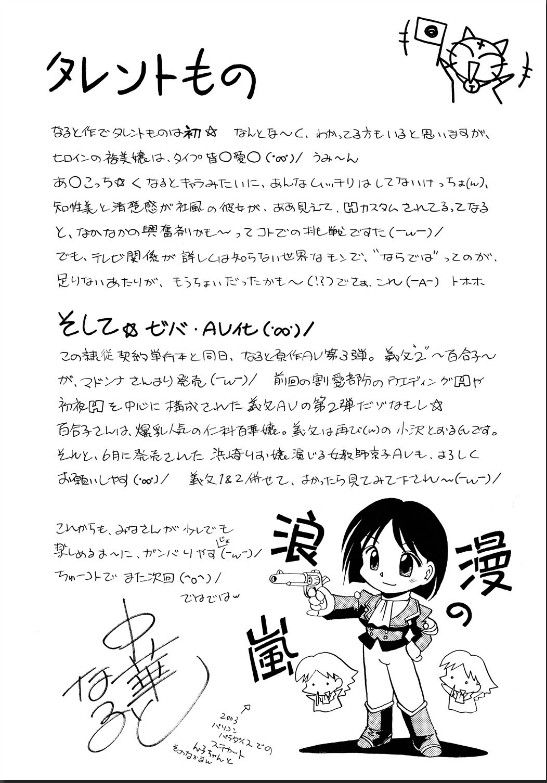 タレントもの
なると作でタレントものは初☆ なんとな〜く、わかってる方もいると思いますが、
ヒロインの裕美嬢は、タイプ皆〇愛〇(・∞・)/ うみ〜ん
あ〇こっち☆くなるとキャラみたいに、あんなムッチリはしてないけっちょ(ω)、
知性美と清楚感が社風の彼女が、ああ見えて、図カスタムされてるってなる
と、なかなかの興奮剤かも〜ってコトでの挑戦ですた(ーωー)/
でも、テレビ関係が詳しくは知らない世界なモンで、"ならでば"ってのが、
足りないあたりが、もうちょいだったかも〜(!?)でてぁ、これ(ーAー) トホホ
そして☆ ゼバ・AV化(・∞・)/
この隷従契約単行本と同日、なると原作AV第3弾。義父"2"〜百合子〜
が、マドンナさんより発売(ーωー)/ 前回の割愛者防のウエディング図や
初夜図を中心に構成された義父AVの第2弾だゾなもし☆
百合子さんは、爆乳人気の仁科百華嬢。義父は再び(ω)の小沢とおるんです。
それと、6月に発売された浜崎りお嬢演じる女教師京子AVも、よろしく
お願いしやす(・∞・)/ 義父1&2併せて、よかったら見てみて下され〜(ーωー)/
これからも、みなさんが少しでも
楽しめるよ〜に、ガンバりやすじょ(ーωー)/
ちゅーコトでまた次回(^o^)/
でわでわω
浪漫の嵐
中華なると
2003